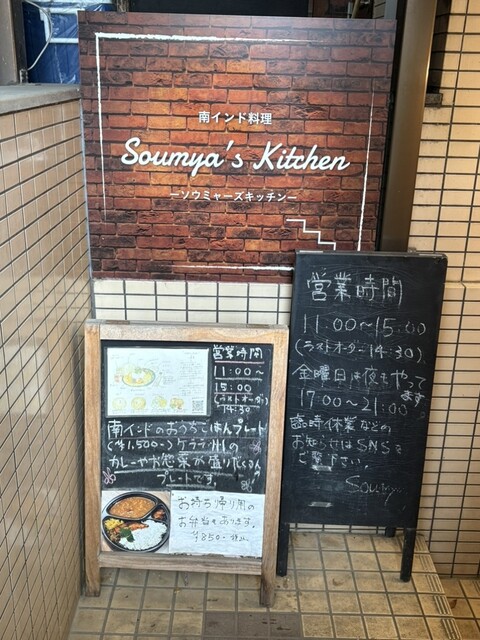 南インド料理
Soumya's Kitchen
ーソウミャーズキッチンー
営業時間
11:00～15:00
(ラストオーダー14:30)
金曜日は夜もやって
ます
17:00～21:00
臨時休業などの
お知らせはSNSを
ご覧下さい。
Soumya
営業時間
11:00～
15:00
(ラストオーダー)
14:30
南インドのおうちごはんプレート
(¥1,500-) ケララ州の
カレーやお惣菜が盛りだくさん
プレートです。
お持ち帰り用の
お弁当もあります。
¥850-税込